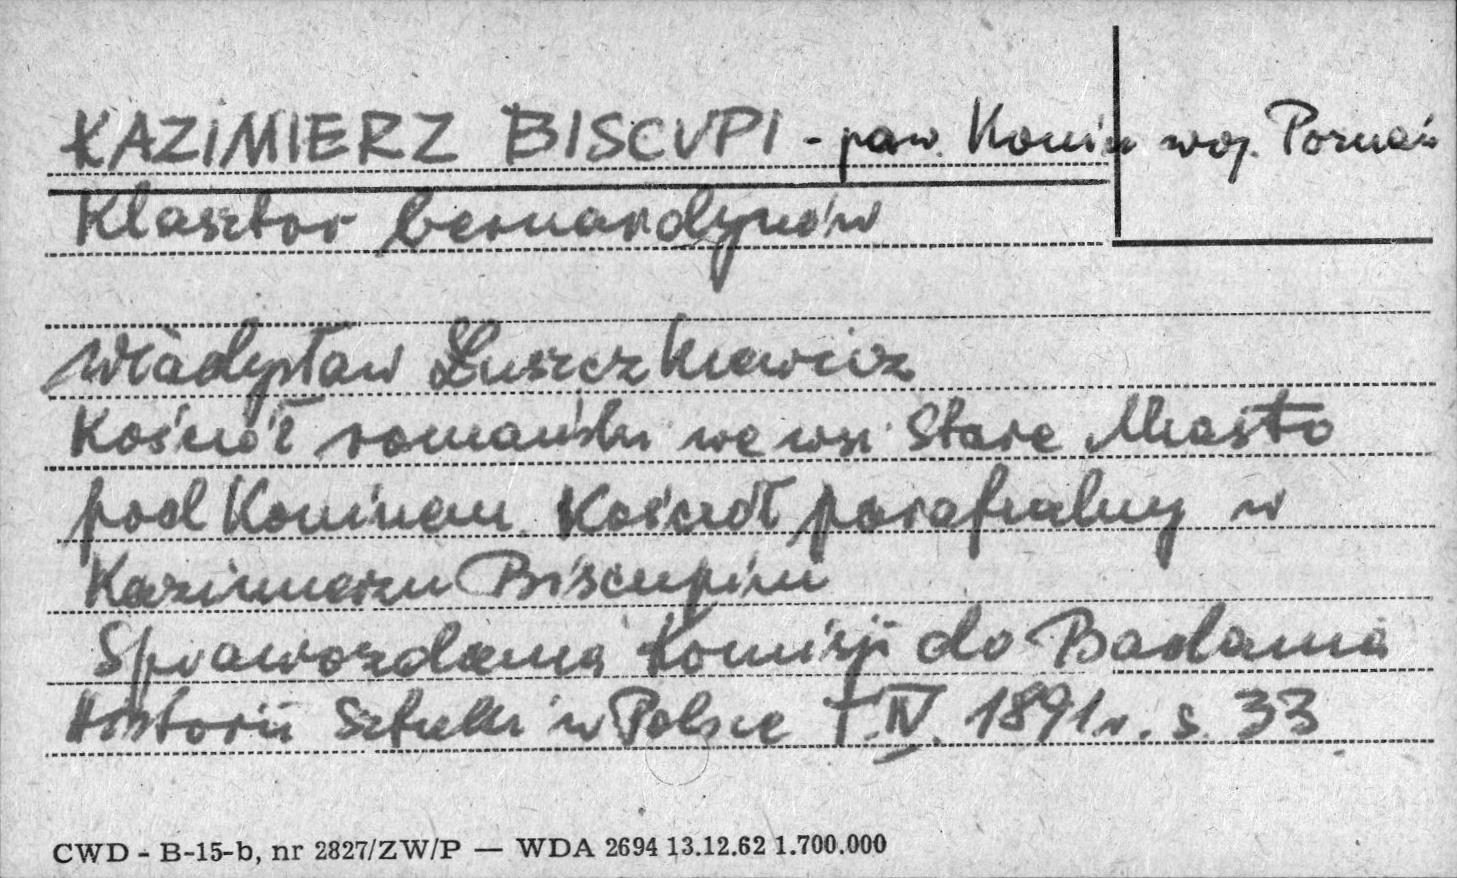 KAZIMIERZ BISCUPI - pow. Konin woj. Poznań
Klasztor bernardynów
Władysław Łuszczkiewicz
Kościół romański we wsi Stare Miasto
pod Koninem. Kościół parafialny w
Kazimierzu Biscupim
Sprawozdania Komisji do Badania
Historii Sztuki w Polsce T. IV. 1891 r. s. 33
CWD - B-15-b, nr 2827/ZW/P — WDA 2694 13.12.62 1.700.000